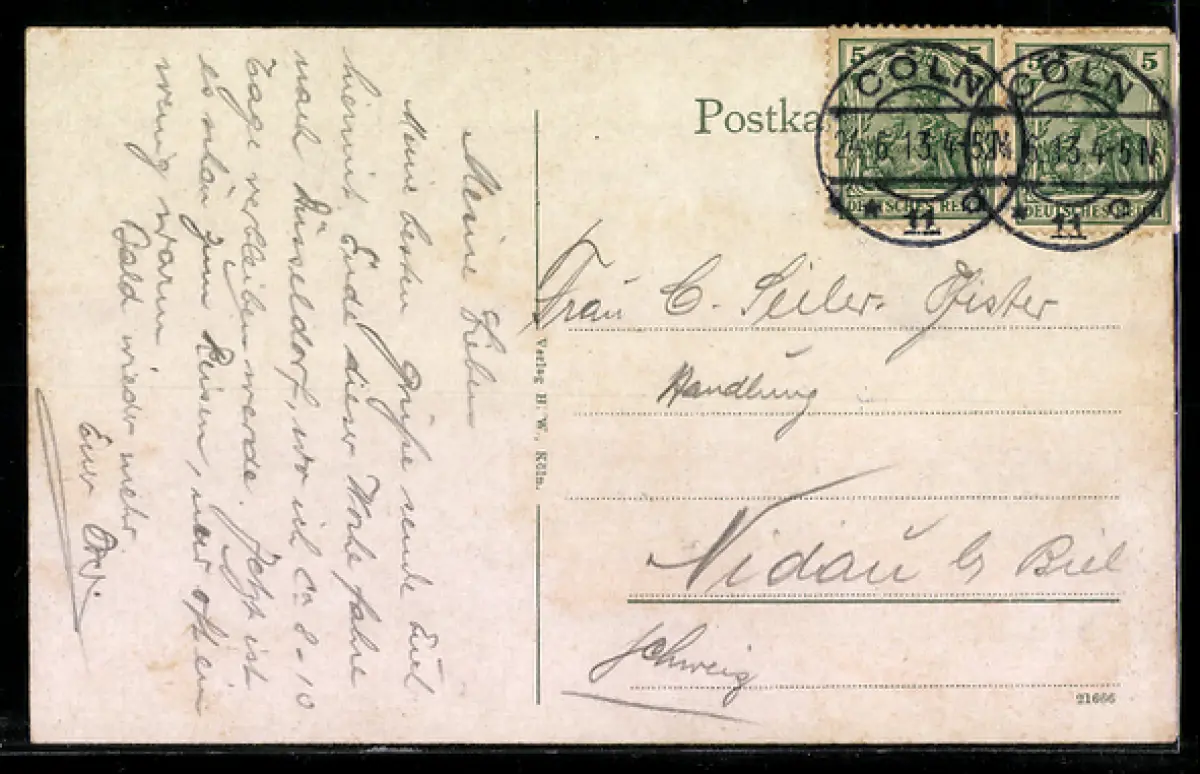 Postka
5 5
5 5
CÖLN
24.6.13.4-5N
* * 11 d
DEUTSCHES REICH
CÖLN
6.13.4-5N
* 11 d
DEUTSCHES REICH
Meine Lieben
Meine besten Grüße sende Euch
hiermit. Ende dieser Woche fahre
nach Düsseldorf, wo ich ca 8-10
Tage verbleiben werde. Jetzt ist
es schön zum Reisen, nur oft ein
wenig warm.
Bald wieder mehr.
Euer
Verlag H. W., Köln.
Frau C. Seiler-Pfister
Handlung
Nidau b/ Biel
Schweiz
21666